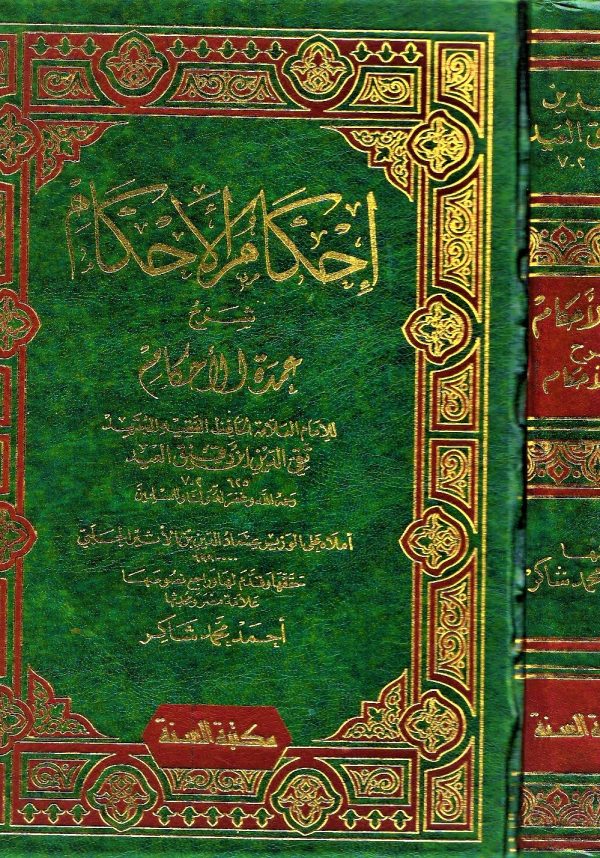 إحكام الأحكام
شرح
عمدة الأحكام
للإمام العلامة الحافظ الفقيه المجتهد
تقي الدين ابن دقيق العيد
٦٢٥ ٧٠٢
رحمه الله وغفر له ولنا وللمسلمين
أملاه على الوزير عماد الدين بن الأثير الحلبي
حققها وقدم لها وراجع نصوصها
علامة مصر ومحدثها
أحمد محمد شاكر
مكتبة السنة
دين
ق العيد
٧٠٢
الأحكام
شرح
الأحكام
قها
محمد شاكر
ة السنة